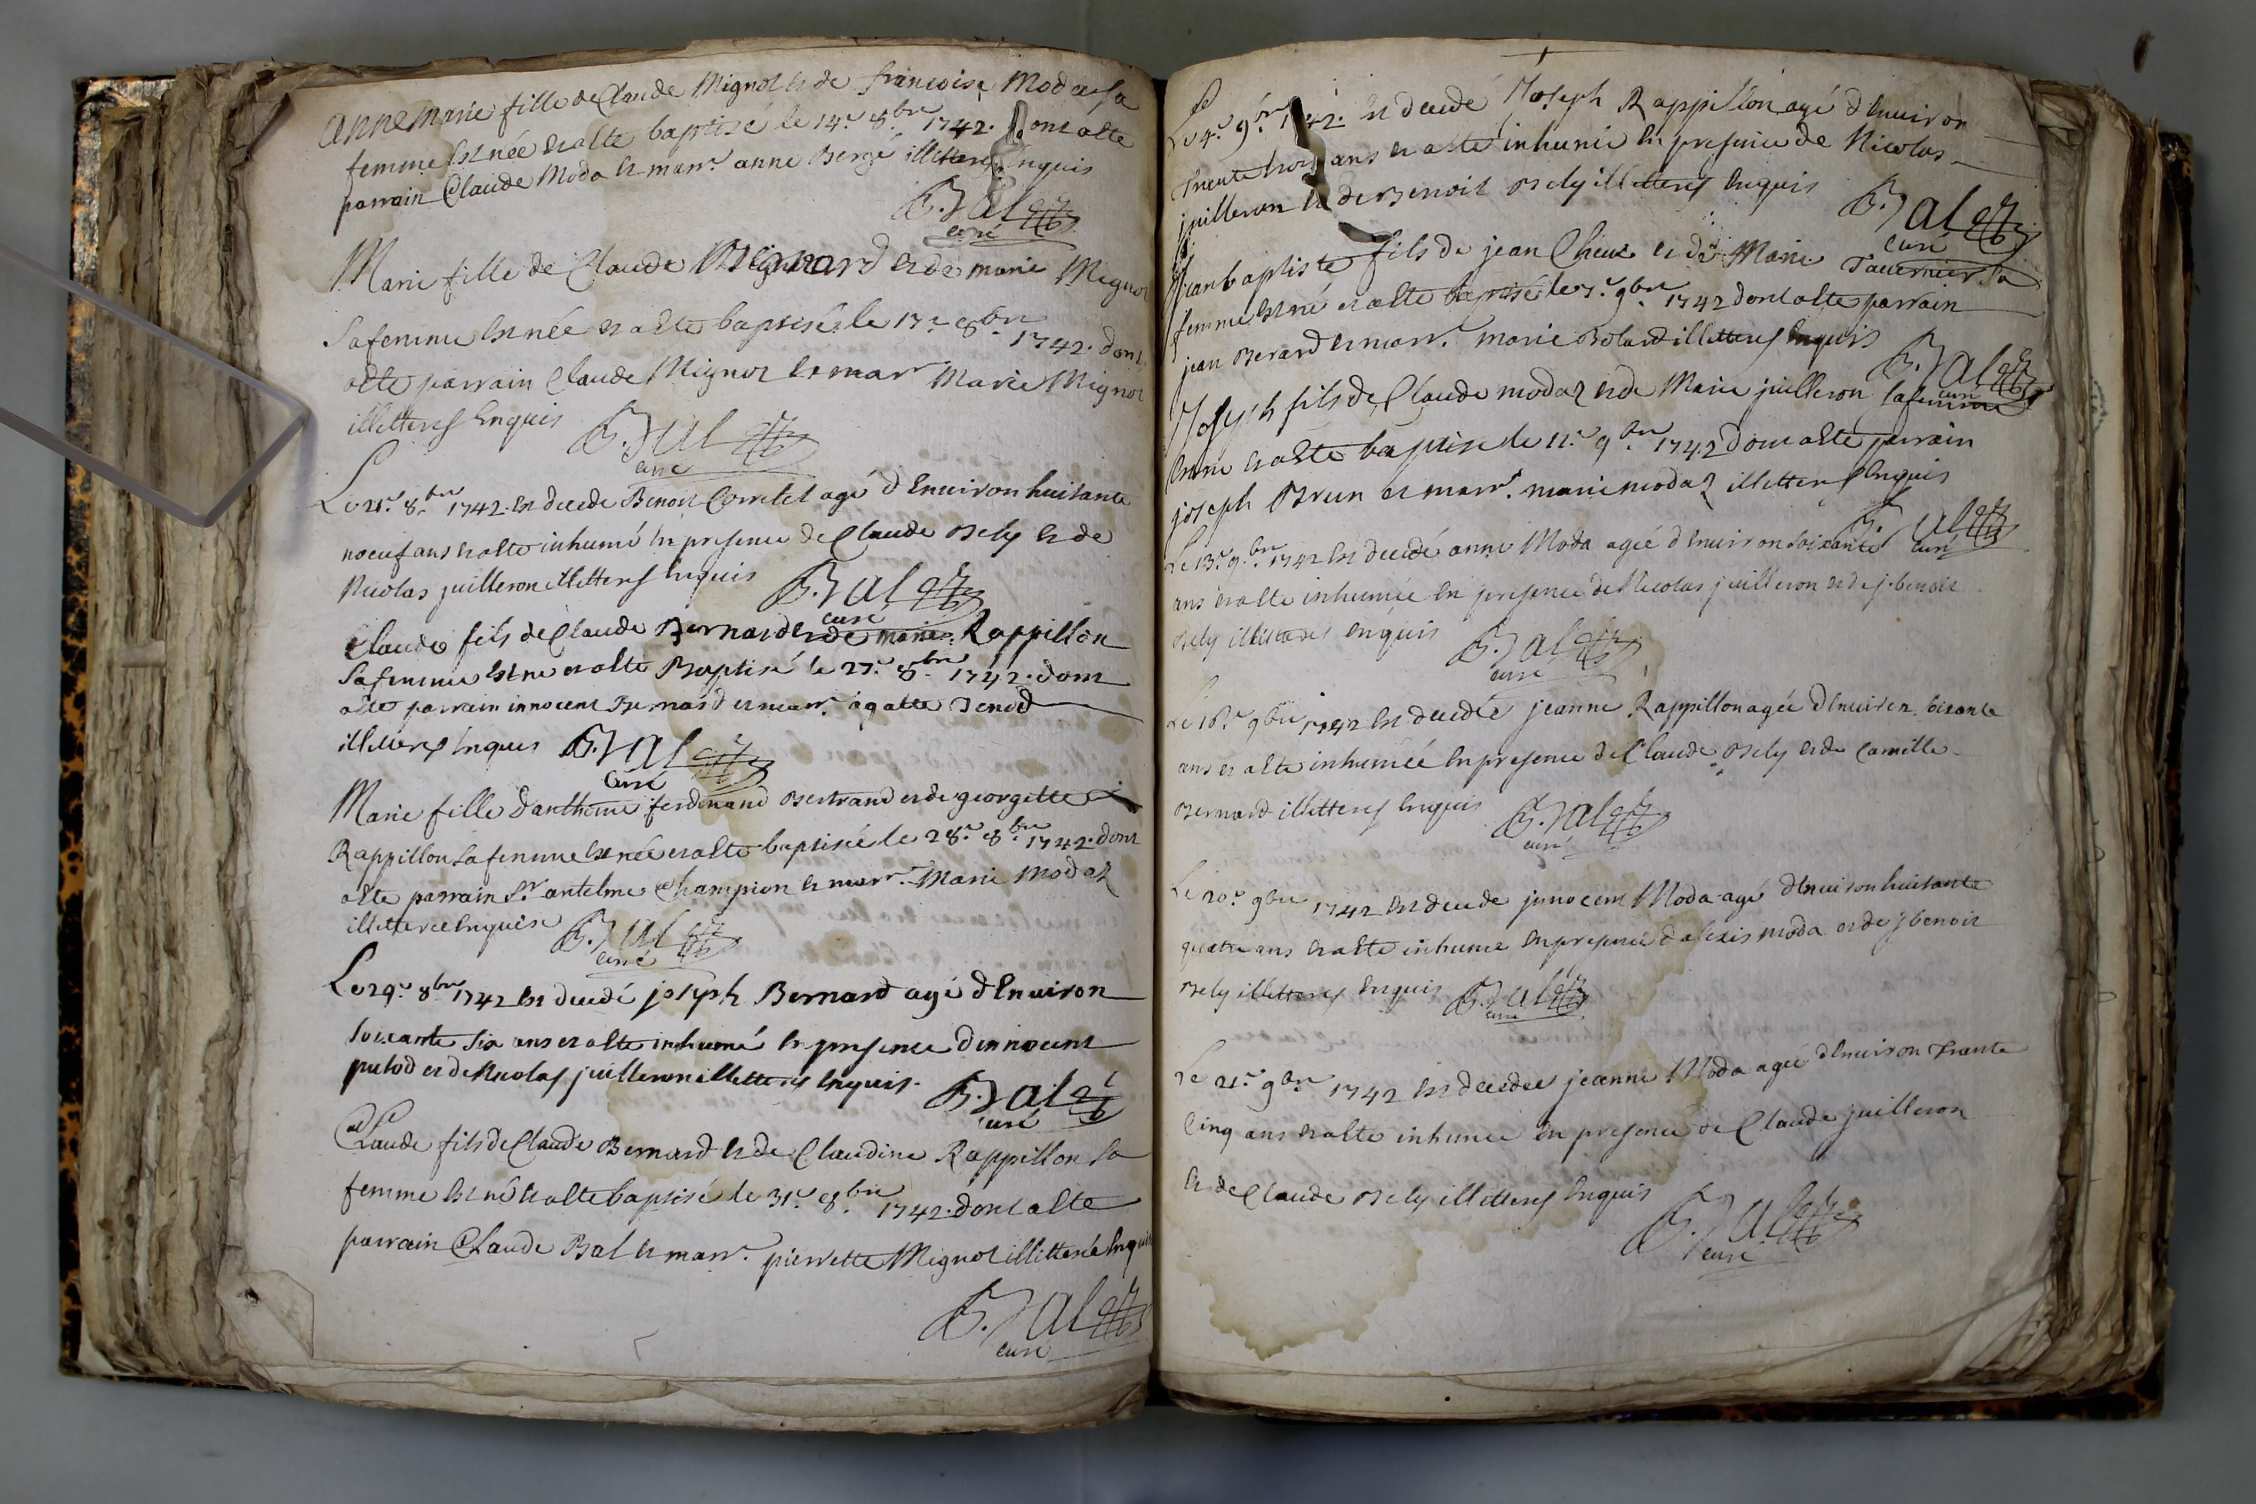 Anne Marie fille de Claude Mignot et de francoise Modaz sa
femme est née et a été baptisé le 14.e 8.bre 1742. dont a été
parrain Claude Moda et marr.e anne Berge illitteres Enquis
B. Jal
curé
Marie fille de Claude Bernard et de marie Mignot
sa femme est née et a été baptisée le 17.e 8.bre 1742. dont
a été parrain Claude Mignot et marr.e Marie Mignot
illitteres Enquis B. Jal
curé
Le 21.e 8.bre 1742. est decede Benoit Cornetet agé d'Environ huitante
noeuf ans et a été inhumé En presence de Claude Bely et de
Nicolas juilleron illitteres Enquis B. Jal
curé
Claude fils de Claude Bernard et de marie Rappillon
sa femme est né et a été Baptisé le 27.e 8.bre 1742. dont
a été parrain innocent Bernard et marr.e agatte
illitteres Enquis B. Jal
curé
Marie fille d'anthelme ferdinand Bertrand et de georgette
Rappillon sa femme est née et a été baptisée le 28.e 8.bre 1742. dont
a été parrain S.r antelme Champion et marr.e Marie Modaz
illitterée Enquise B. Jal
curé
Le 29.e 8.bre 1742 est decedé joseph Bernard agé d'Environ
soixante six ans et a été inhumé En presence d'innocent
putod et de Nicolas juilleron illitteres Enquis. B. Jal
curé
Claude fils de Claude Bernard et de Claudine Rappillon sa
femme est né et a été baptisé le 31.e 8.bre 1742. dont a été
parrain Claude Bal et marr.e pierrette Mignot illitterée Enquis
B. Jal
curé
Le 4.e 9.bre 1742. est decedé Joseph Rappillon agé d'Environ
trente trois ans et a été inhumé En presence de Nicolas
juilleron et de Benoit Bely illitteres Enquis B. Jal
curé
Jean baptiste fils de jean Cheux et de Marie Tavernier sa
femme est né et a été baptisé le 7.e 9.bre 1742 dont a été parrain
jean Berard et marr.e marie Bolard illitteres Enquis B. Jal
curé
Joseph fils de Claude modaz et de Marie juilleron sa femme
Est né et a été baptisé le 11.e 9.bre 1742 dont a été parrain
joseph Brun et marr.e marie modaz illitteres Enquis
B. Jal
curé
Le 13.e 9.bre 1742 est decedé anne Moda agée d'Environ soixante
ans et a été inhumée En presence de Nicolas juilleron et de j. benoit
Bely illiterés Enquis B. Jal
curé
Le 16.e 9bre 1742 est decedée jeanne Rappillon agée d'Environ soixante
ans et a été inhumée En presence de Claude Bely et de Camille
Bernard illitteres Enquis B. Jal
curé
Le 20.e 9bre 1742 est decede jnnocent Moda agé d'Environ huitante
quatre ans et a été inhumé En presence d'alexis moda et de j benoit
Bely illitteres Enquis B. Jal
curé
Le 21.e 9bre 1742 est decedee jeanne Moda agée d'Environ Trante
Cinq ans et a été inhumée En presence de Claude juilleron
Et de Claude Bely illitteres Enquis B. Jal
curé